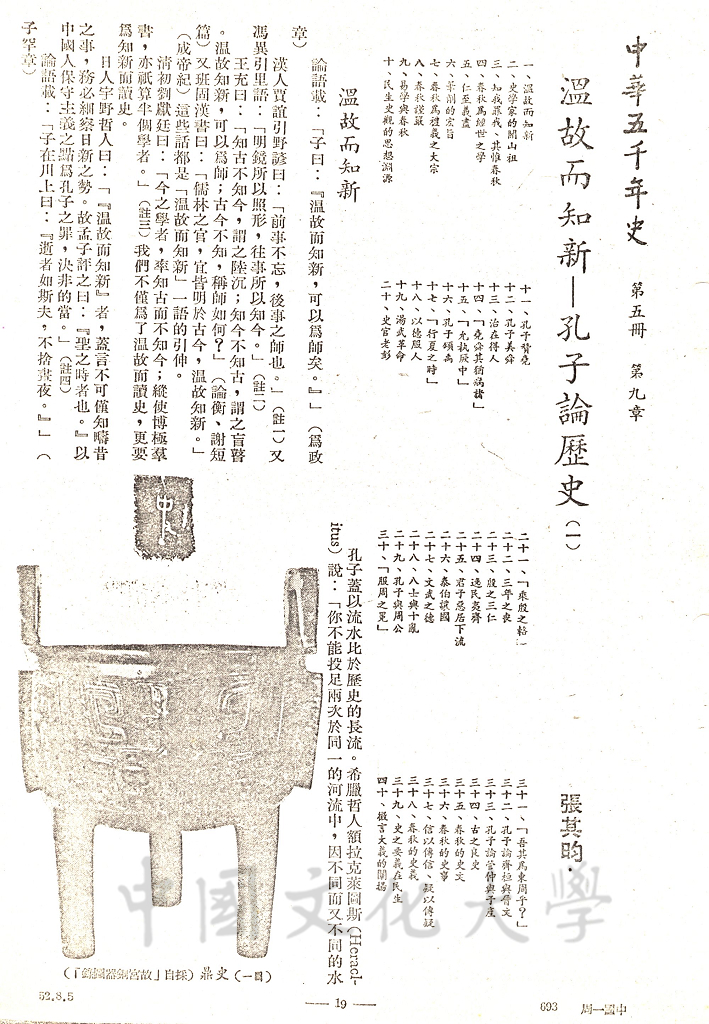 中華五千年史　第五冊　第九章
溫故而知新—孔子論歷史(一)
張其昀
一、溫故而知新
二、史學家的開山祖
三、知我罪我、其惟春秋
四、春秋爲經世之學
五、仁至義盡
六、筆削的宏旨
七、春秋爲禮義之大宗
八、春秋謹嚴
九、易學與春秋
十、民生史觀的思想淵源
十一、孔子贊堯
十二、孔子美舜
十三、治在得人
十四、「堯舜其猶病諸」
十五、「允執厥中」
十六、孔子頌禹
十七、「行夏之時」
十八、以德服人
十九、湯武革命
二十、史官老彭
二十一、「乘殷之輅」
二十二、三年之喪
二十三、殷之三仁
二十四、逸民夷齊
二十五、君子惡居下流
二十六、泰伯讓國
二十七、文武之德
二十八、八士與十亂
二十九、孔子與周公
三十、「服周之冕」
三十一、「吾其爲東周乎？」
三十二、孔子論齊桓與晉文
三十三、孔子論管仲與子產
三十四、古之良史
三十五、春秋的史文
三十六、春秋的史事
三十七、信以傳信、疑以傳疑
三十八、春秋的史義
三十九、史之要義在民生
四十、微言大義的闡揚
溫故而知新
論語載：「子曰：『溫故而知新，可以爲師矣。』」(爲政
章)
漢人賈誼引野諺曰：「前事不忘，後事之師也。」(註一)又
馮異引里語：「明鏡所以照形，往事所以知今。」(註二)
王充曰：「知古不知今，謂之陸沉；知今不知古，謂之盲瞽
。溫故知新，可以爲師；古今不知，稱師如何？」(論衡、謝短
篇)又班固漢書曰：「儒林之官，宜皆明於古今，溫故知新。」
(成帝紀)這些話都是「溫故而知新」一語的引伸。
清初劉獻廷曰：「今之學者，率知古而不知今；縱使博極羣
書，亦祇算半個學者。」(註三)我們不僅爲了溫故而讀史，更要
爲知新而讀史。
日人宇野哲人曰：「『溫故而知新』者，蓋言不可僅知疇昔
之事，務必細察日新之勢。故孟子評之曰：『聖之時者也。』以
中國人保守主義之點爲孔子之罪，決非的當。」(註四)
論語載：「子在川上曰：『逝者如斯夫，不捨晝夜。』」(
子罕章)
孔子蓋以流水比於歷史的長流。希臘哲人額拉克萊圖斯(Heracl-
itus)說：「你不能投足兩次於同一的河流中，因不同而又不同的水
(圖一)史鼎(採自「故宮銅器圖錄」)
中國文化大學
52.8.5
— 19 —
693
中國一周